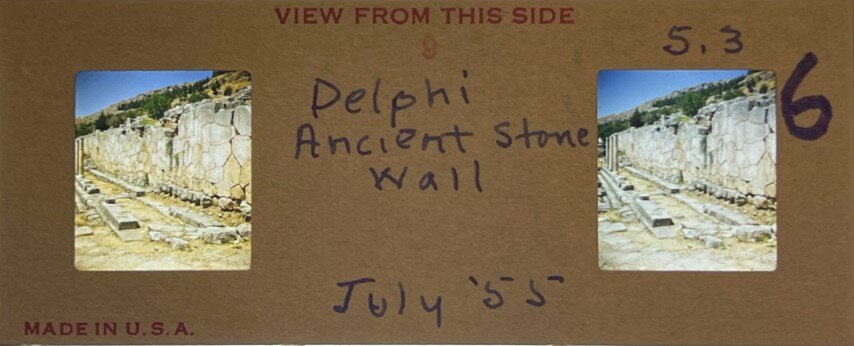 VIEW FROM THIS SIDE
9
5.3
6
Delphi
Ancient Stone
Wall
July '55
MADE IN U.S.A.